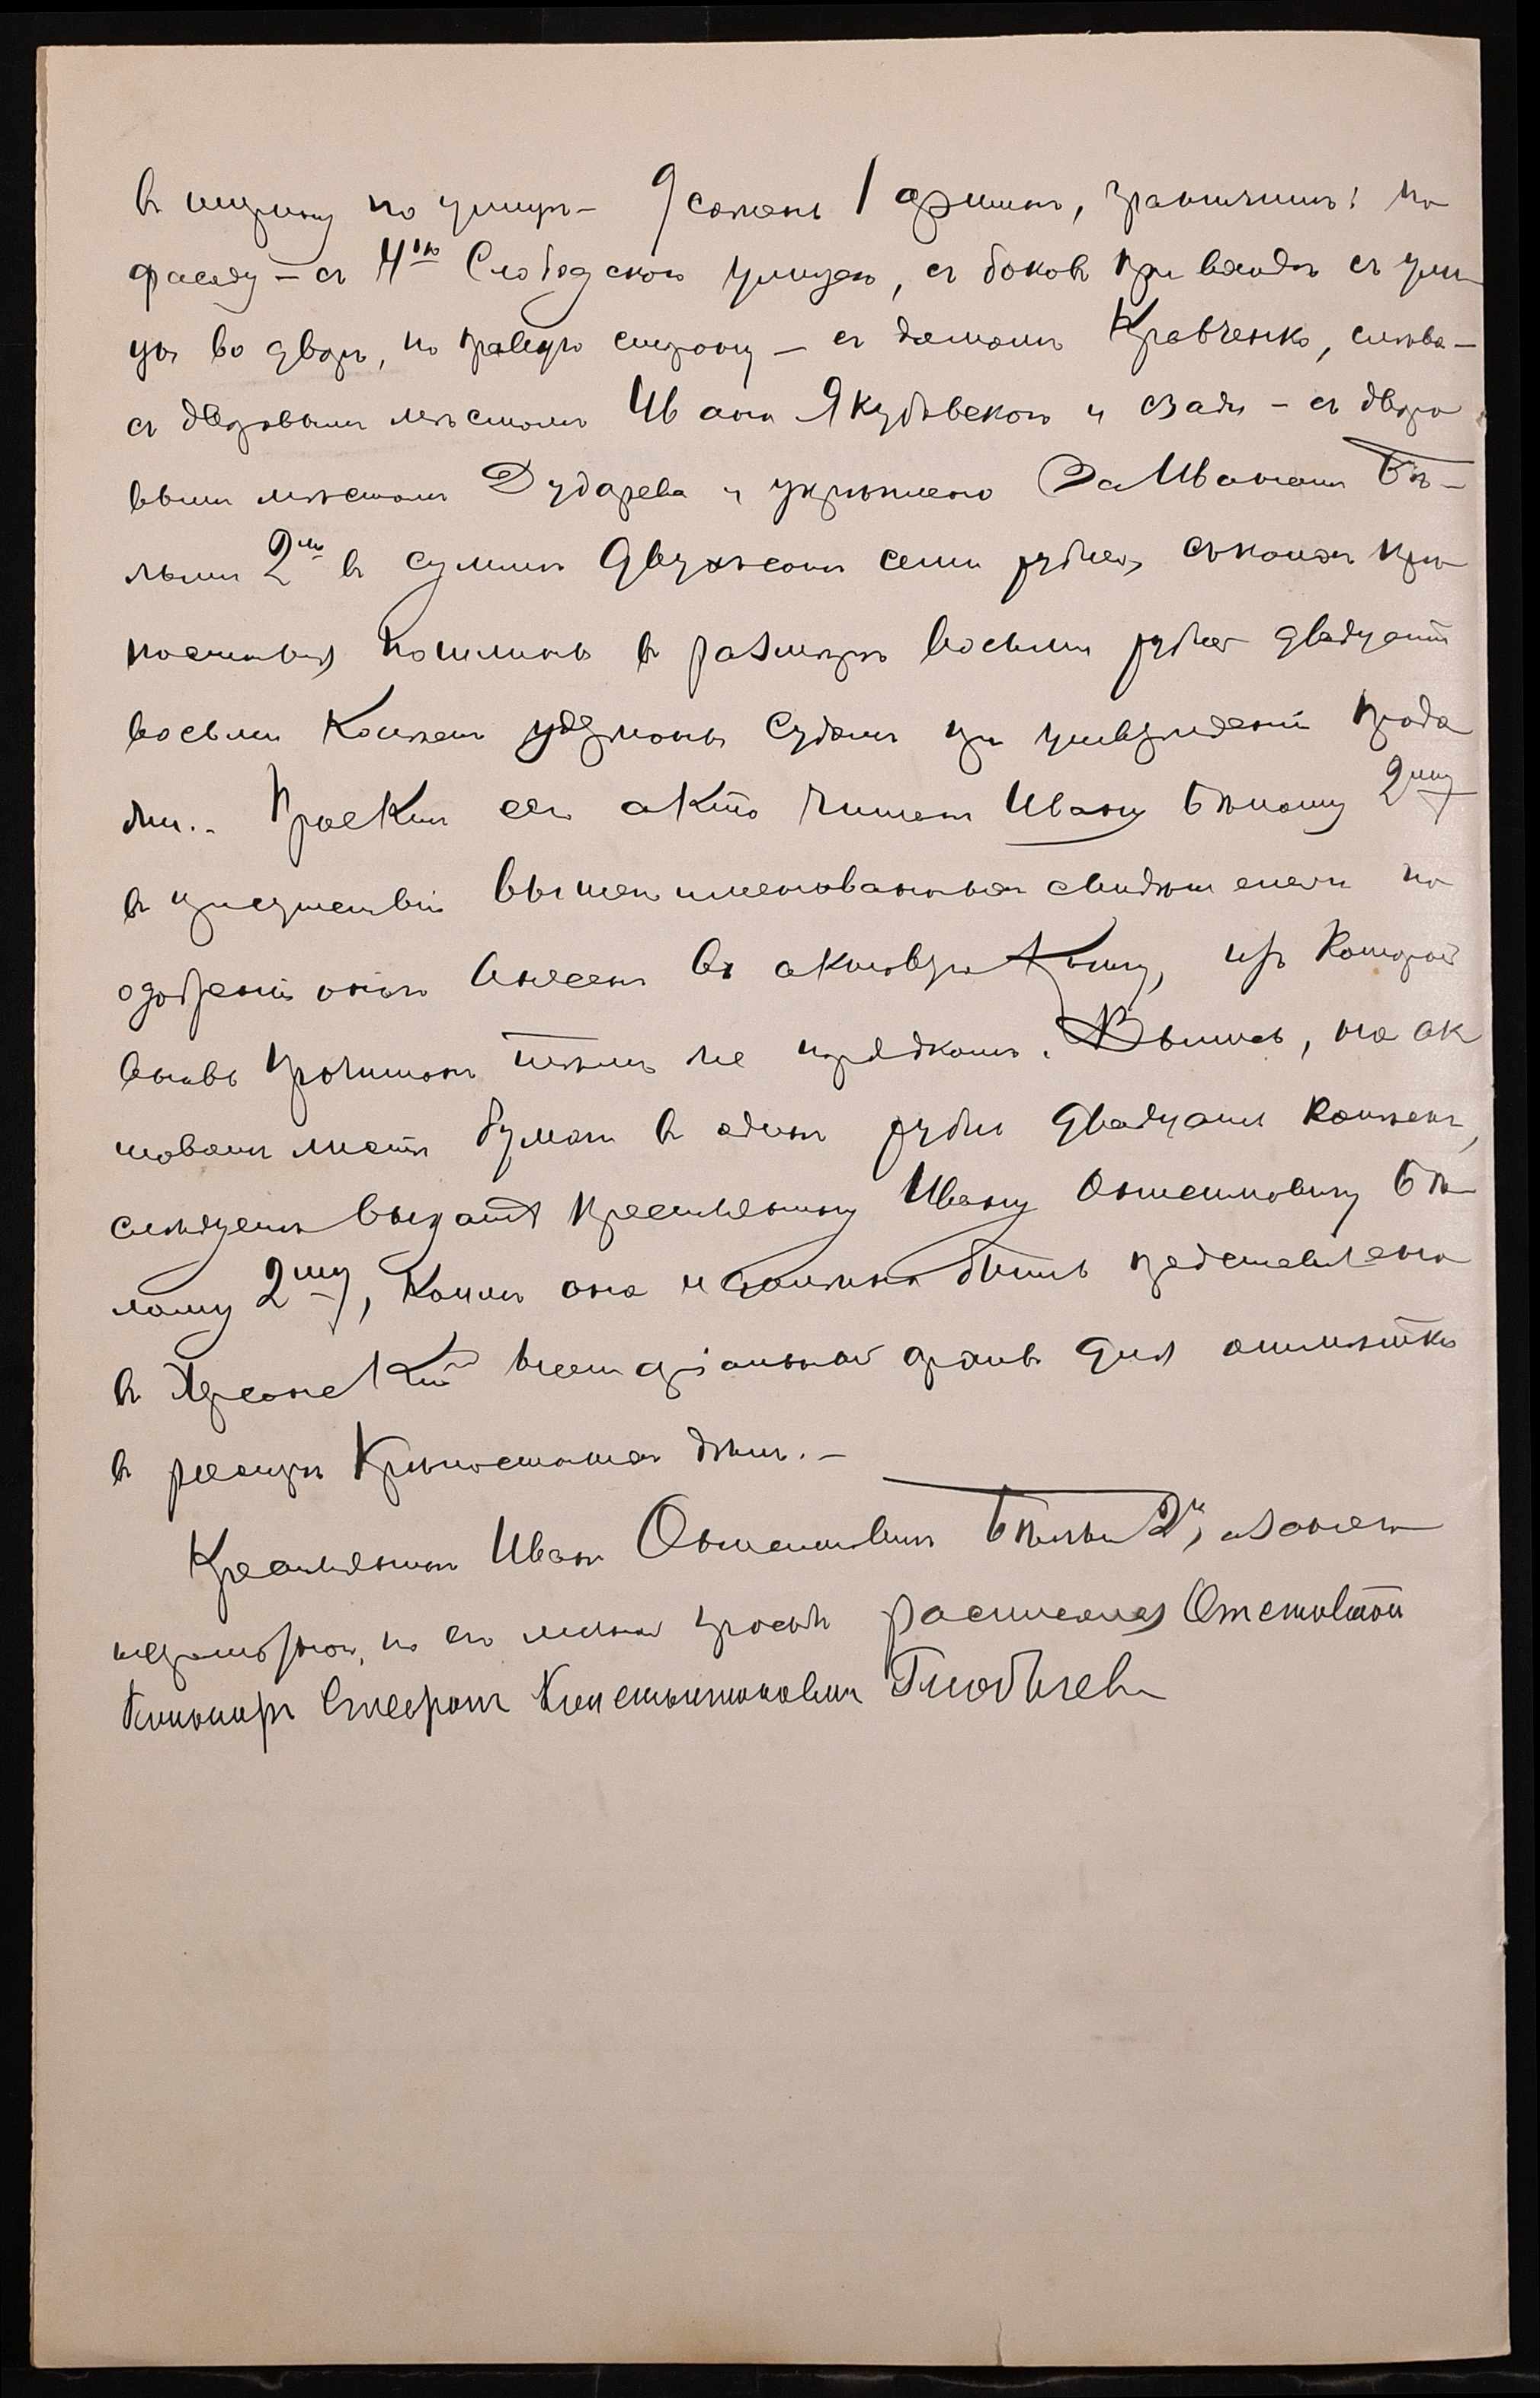 въ ширину по улицѣ – 9 сажень 1 аршинъ, граничитъ: по
фасаду – съ 4ою Слободскою улицею, съ боковъ при входѣ съ ули
цы во дворъ, по правую сторону – съ домомъ Кравченко, слѣва –
съ дворовымъ мѣстомъ Ивана Якубовскаго и сзади – съ дворо
вымъ мѣстомъ Дударева и укрѣплено за Иваномъ Бѣ–
лымъ 2мъ въ суммѣ двухсотъ семи рублей, съ коихъ крѣ
постныхъ пошлинъ въ размѣрѣ восьми рублей двадцати
восьми копѣекъ удержаны Судомъ при утвержденіи прода
жи.. Проектъ сего акта читанъ Ивану Бѣлому 2му
въ присутствіи вышепоименованныхъ свидѣтелей и по
одобреніи онаго внесенъ въ актовую книгу, изъ которой
вновь прочитанъ тѣмъ же порядкомъ. Выпись, на ак
товомъ листѣ бумаги въ одинъ рубль двадцать копѣекъ,
слѣдуетъ выдать крестьянину Ивану Бѣ
лому 2му, коимъ она и должна быть представлена
въ Херсонскій нотаріальный архивъ для отмѣтки
въ реестрѣ крѣпостныхъ дѣлъ. –
Крестьянинъ Иванъ Бѣлый 2й, а за него
неграмотнаго, по его личной просьбѣ расписался Отставной
Константиновичъ